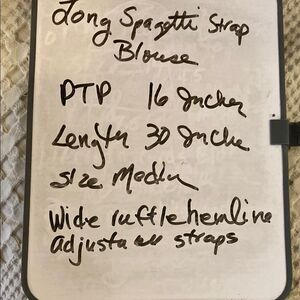 Long Spagetti Strap
Blouse
PTP 16 Inches
Length 30 Inche
Size Medium
Wide ruffle hemline
adjustable straps